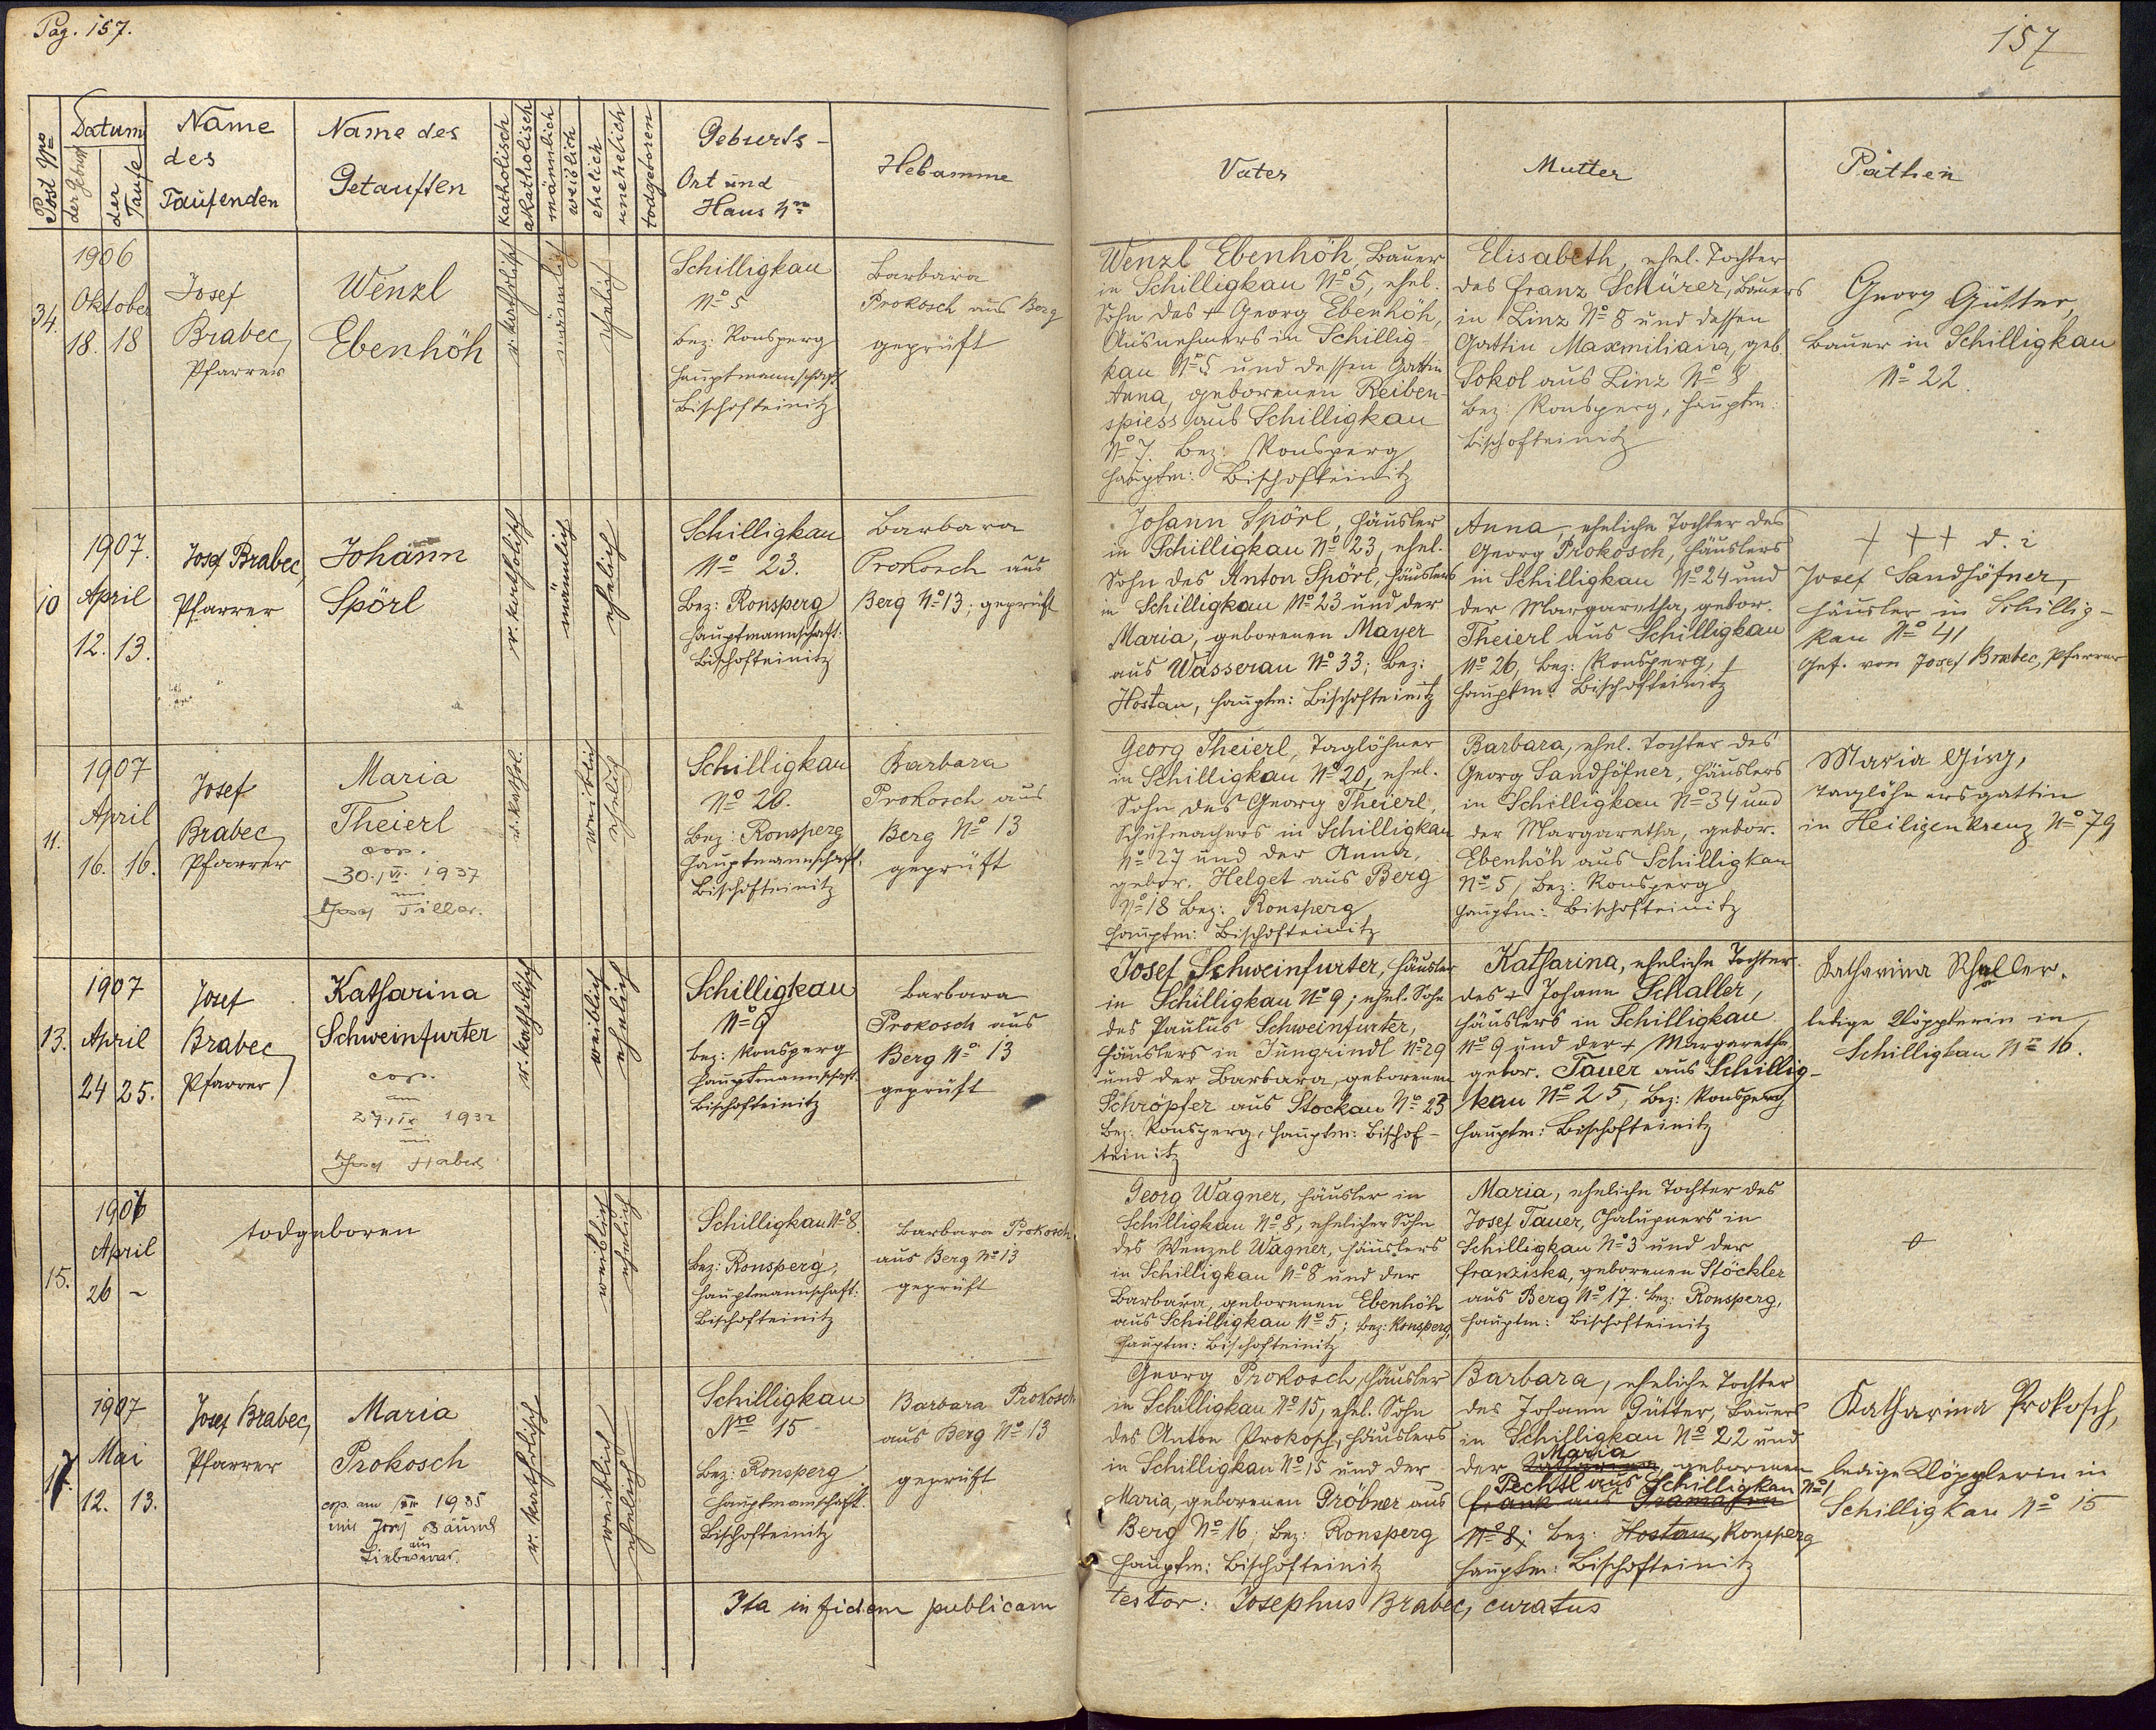 Pag. 157.
157
Post No
Datum
der Geburt
der Taufe
Name
des
Taufenden
Name des
Getauften
katholisch
akatholisch
männlich
weiblich
ehelich
unehelich
todgeboren
Geburts-
Ort und
Haus No
Hebamme
Vater
Mutter
Pathen
34.
1906
Oktober
18. 18
Josef
Brabec,
Pfarrer
Wenzl
Ebenhöh
r. katholisch
männlich
ehelich
Schilligkau
No 5
Bez: Ronsperg
Hauptmannschaft
Bischofteinitz
Barbara
Prokosch aus Berg
geprüft
Wenzl Ebenhöh, Bauer
in Schilligkau No 5, ehel.
Sohn des + Georg Ebenhöh,
Ausnehmers in Schillig-
kau No 5 und dessen Gattin
Anna, geborenen Reiben-
spiess aus Schilligkau
No 7. Bez: Ronsperg
Hauptm: Bischofteinitz
Elisabeth, ehel. Tochter
des Franz Schürer, Bauers
in Linz No 8 und dessen
Gattin Maxmiliana, geb.
Sokol aus Linz No 8
Bez: Ronsperg, Hauptm:
Bischofteinitz
Georg Gütter,
Bauer in Schilligkau
No 22.
10
1907.
April
12. 13.
Josef Brabec,
Pfarrer
Johann
Spörl
r. katholisch
männlich
ehelich
Schilligkau
No 23.
Bez: Ronsperg
Hauptmannschaft:
Bischofteinitz
Barbara
Prokosch aus
Berg No 13; geprüft
Johann Spörl, Häusler
in Schilligkau No 23, ehel.
Sohn des Anton Spörl, Häuslers
in Schilligkau No 23 und der
Maria, geborenen Mayer
aus Wasserau No 33; Bez:
Hostau, Hauptm: Bischofteinitz
Anna, eheliche Tochter des
Georg Prokosch, Häuslers
in Schilligkau No 24 und
der Margaretha, gebor.
Theierl aus Schilligkau
No 26, Bez: Ronsperg,
Hauptm: Bischofteinitz
+ + + d. i
Josef Sandhöfner,
Häusler in Schillig-
kau No 41
Gef. von Josef Brabec, Pfarrer
11.
1907
April
16. 16.
Josef
Brabec
Pfarrer
Maria
Theierl
cop.
30. VI. 1937
mit
Josef Tiller.
r. kathol.
weiblich
ehelich
Schilligkau
No 20.
Bez: Ronsperg
Hauptmannschaft:
Bischofteinitz
Barbara
Prokosch aus
Berg No 13
geprüft
Georg Theierl, Taglöhner
in Schilligkau No 20, ehel.
Sohn des Georg Theierl,
Schuhmachers in Schilligkau
No 27 und der Anna,
gebor. Helget aus Berg
No 18 Bez: Ronsperg
Hauptm: Bischofteinitz
Barbara, ehel. Tochter des
Georg Sandhöfner, Häuslers
in Schilligkau No 34 und
der Margaretha, gebor.
Ebenhöh aus Schilligkau
No 5, Bez: Ronsperg
Hauptm: Bischofteinitz
Maria
Taglöhnersgattin
in Heiligenkreuz No 79
13.
1907
April
24 25.
Josef
Brabec
Pfarrer
Katharina
Schweinfurter
cop.
am
27. IX 1932
mit
Josef
r. katholisch
weiblich
ehelich
Schilligkau
No 9
Bez: Ronsperg
Hauptmannschaft.
Bischofteinitz
Barbara
Prokosch aus
Berg No 13
geprüft
Josef Schweinfurter, Häusler
in Schilligkau No 9; ehel. Sohn
des Paulus Schweinfurter,
Häuslers in Jungrindl No 29
und der Barbara, geborenen
Schröpfer aus Stockau No 23
Bez: Ronsperg, Hauptm: Bischof-
teinitz
Katharina, eheliche Tochter
des + Johann Schaller,
Häuslers in Schilligkau
No 9 und der + Margaretha,
gebor. Tauer aus Schillig-
kau No 25, Bez: Ronsperg
Hauptm: Bischofteinitz
Katharina Schaller,
ledige Klöpplerin in
Schilligkau No 16.
15.
1907
April
26 -
todgeboren
weiblich
ehelich
Schilligkau No 8.
Bez: Ronsperg,
Hauptmannschaft:
Bischofteinitz
Barbara Prokosch
aus Berg No 13
geprüft
Georg Wagner, Häusler in
Schilligkau No 8, ehelicher Sohn
des Wenzel Wagner, Häuslers
in Schilligkau No 8 und der
Barbara, geborenen Ebenhöh
aus Schilligkau No 5; Bez: Ronsperg,
Hauptm: Bischofteinitz
Maria, eheliche Tochter des
Josef Tauer, Chalupners in
Schilligkau No 3 und der
Franziska, geborenen Stöckler
aus Berg No 17. Bez: Ronsperg,
Hauptm: Bischofteinitz
17.
1907
Mai
12. 13.
Josef Brabec,
Pfarrer
Maria
Prokosch
cop. am 1935
mit Josef Bäuml
aus
Liebeswar.
r. katholisch
weiblich
ehelich
Schilligkau
Nro 15
Bez: Ronsperg
Hauptmannschaft.
Bischofteinitz
Barbara Prokosch
aus Berg No 13
geprüft
Georg Prokosch, Häusler
in Schilligkau No 15, ehel. Sohn
des Anton Prokosch, Häuslers
in Schilligkau No 15 und der
Maria, geborenen Pröbner aus
Berg No 16; Bez: Ronsperg
Hauptm: Bischofteinitz
Barbara, eheliche Tochter
des Johann Gütter, Bauers
in Schilligkau No 22 und
Maria
der geborenen
Pechtl aus Schilligkau No 1
Frank aus
No 8; Bez: Hostau, Ronsperg
Hauptm: Bischofteinitz
Katharina Prokosch,
ledige Klöpplerin in
Schilligkau No 15
Ita in fidem publicam
testor: Josephus Brabec, curatus